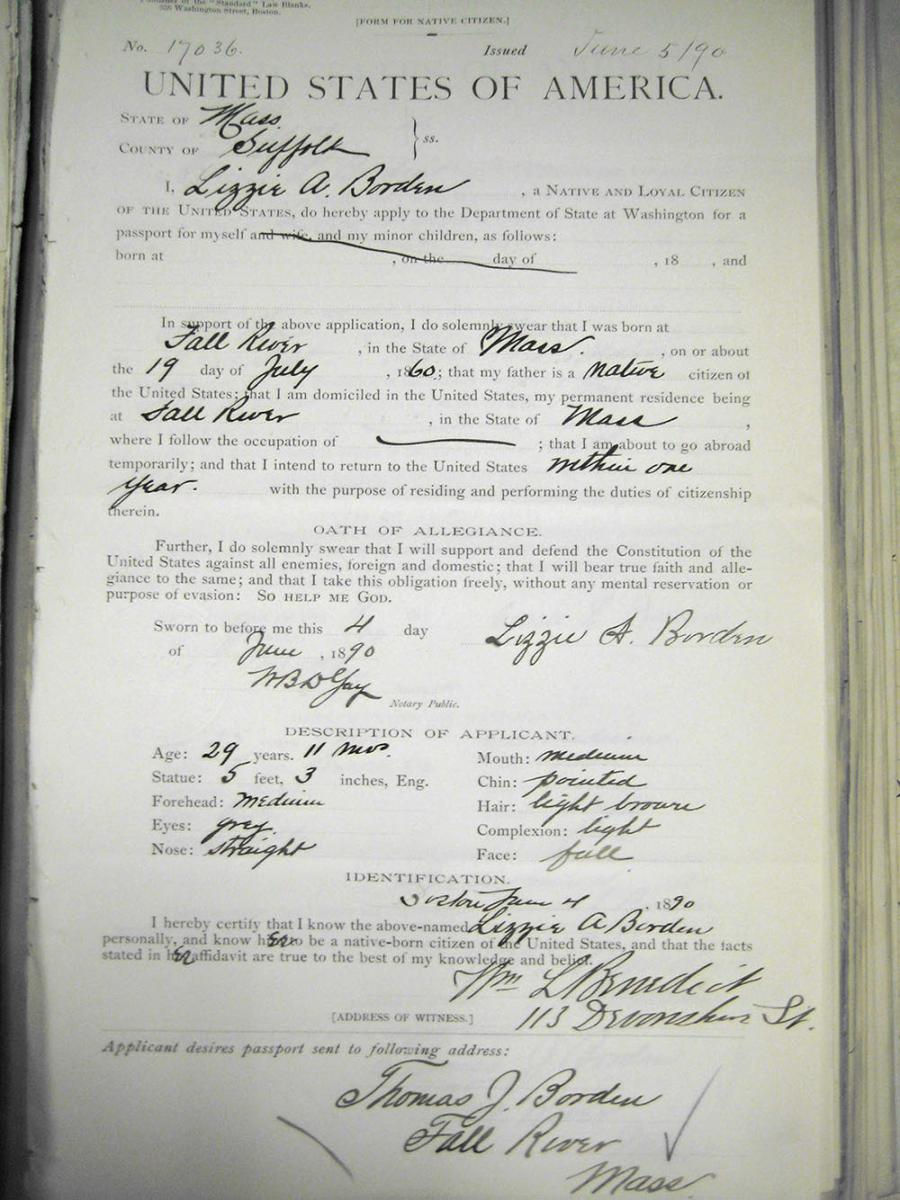 Publisher of the "Standard" Law Blanks,
Washington Street, Boston.
[FORM FOR NATIVE CITIZEN.]
No. 17036. Issued June 5/90
UNITED STATES OF AMERICA.
STATE OF Mass.
COUNTY OF Suffolk } ss.
I, Lizzie A. Borden, a NATIVE AND LOYAL CITIZEN
OF THE UNITED STATES, do hereby apply to the Department of State at Washington for a
passport for myself and wife, and my minor children, as follows:
born at , on the day of , 18 , and
In support of the above application, I do solemnly swear that I was born at
Fall River , in the State of Mass. , on or about
the 19 day of July , 1860; that my father is a native citizen of
the United States; that I am domiciled in the United States, my permanent residence being
at Fall River , in the State of Mass ,
where I follow the occupation of ; that I am about to go abroad
temporarily; and that I intend to return to the United States within one
year. with the purpose of residing and performing the duties of citizenship
therein.
OATH OF ALLEGIANCE.
Further, I do solemnly swear that I will support and defend the Constitution of the
United States against all enemies, foreign and domestic; that I will bear true faith and alle-
giance to the same; and that I take this obligation freely, without any mental reservation or
purpose of evasion: SO HELP ME GOD.
Sworn to before me this 4 day Lizzie A. Borden
of June , 1890
Notary Public.
DESCRIPTION OF APPLICANT.
Age: 29 years. 11 mos. Mouth: medium
Statue: 5 feet, 3 inches, Eng. Chin: pointed
Forehead: Medium Hair: light brown
Eyes: grey. Complexion: light
Nose: straight Face: full
IDENTIFICATION.
Boston June 4 , 1890
I hereby certify that I know the above-named Lizzie A Borden
personally, and know her to be a native-born citizen of the United States, and that the facts
stated in her affidavit are true to the best of my knowledge and belief.
Wm L Benedict
[ADDRESS OF WITNESS.] 113 Devonshire St.
Applicant desires passport sent to following address:
Thomas J. Borden
Fall River
Mass